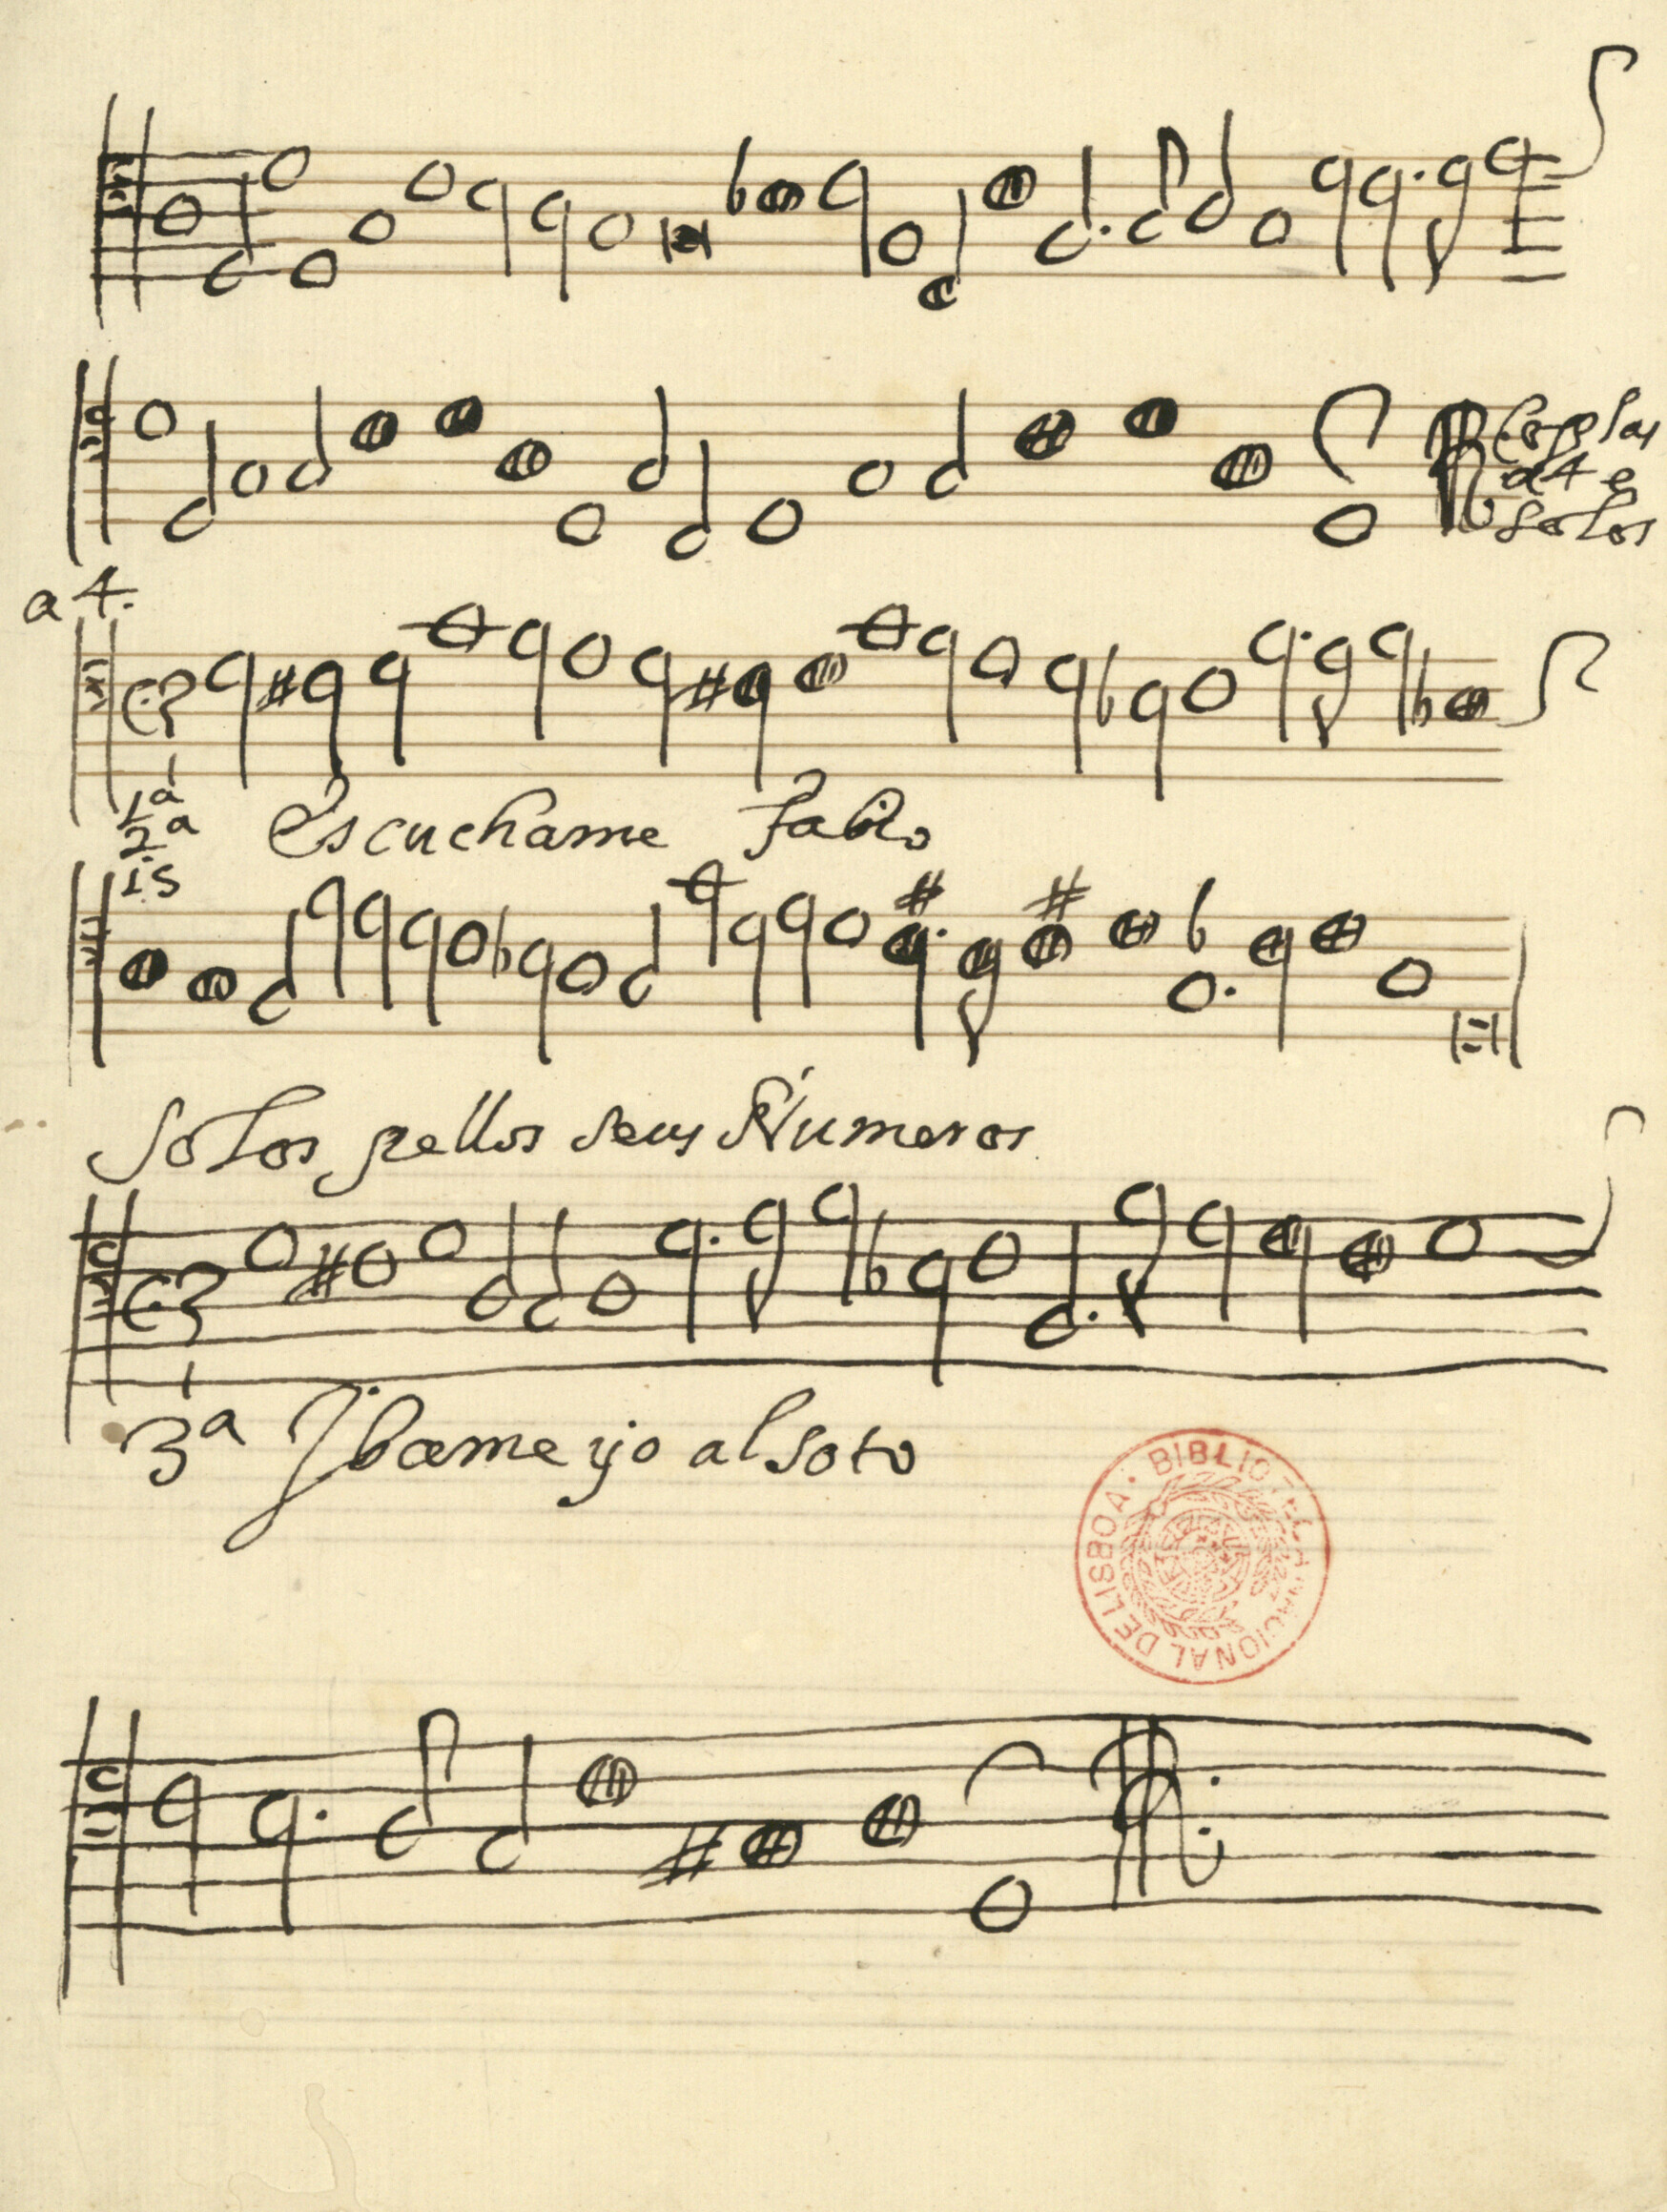 Coplas
a 4 e
solos
a 4.
1ª
2ª
Escuchame Fabio
15
Solos pellos seus Numeros
3ª Jbame yo al soto
BIBLIOTECA NACIONAL DE LISBOA